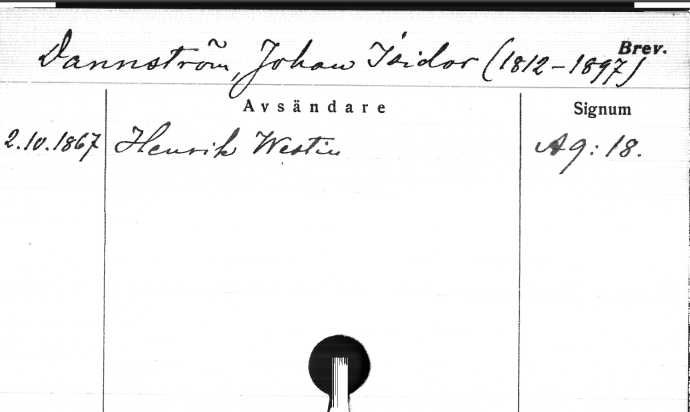 Brev.
Dannström, Johan Isidor (1812-1897)
Avsändare Signum
2.10.1867 Henrik Westin Ag: 18.